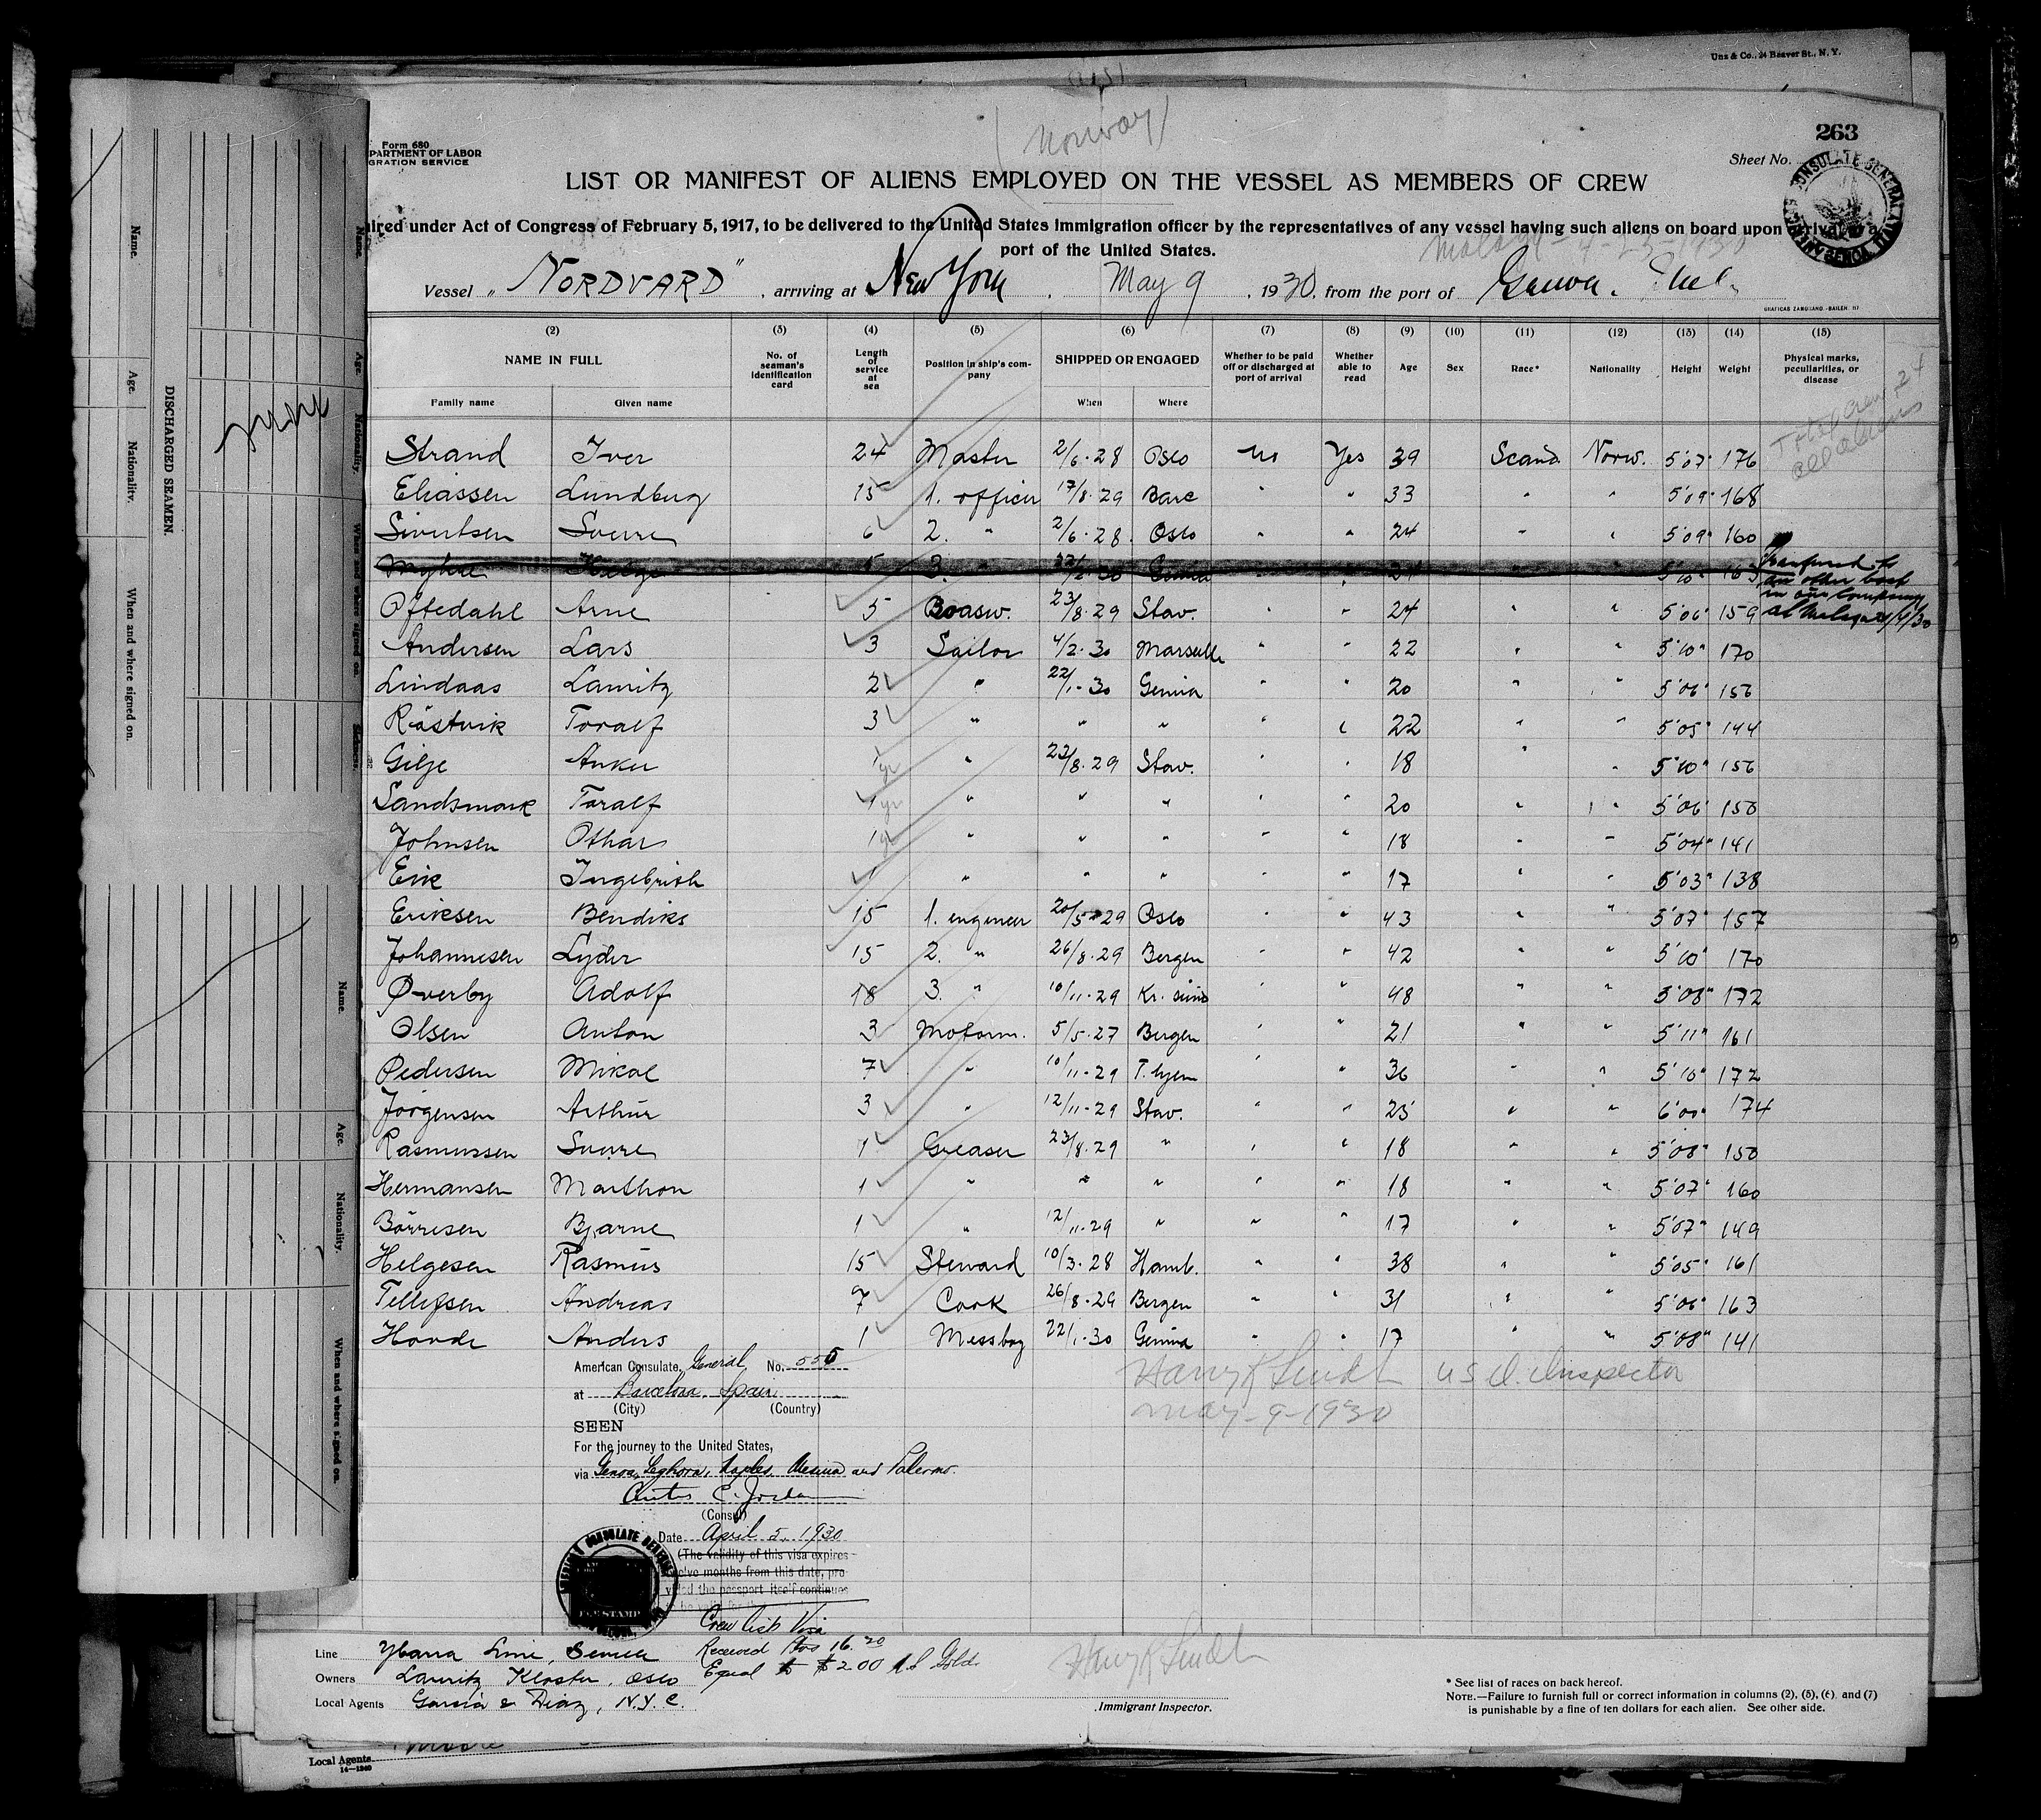 Unz & Co., 24 Beaver St., N. Y.
(Norway)
263
Form 680
PARTMENT OF LABOR
GRATION SERVICE
Sheet No.
LIST OR MANIFEST OF ALIENS EMPLOYED ON THE VESSEL AS MEMBERS OF CREW
ired under Act of Congress of February 5, 1917, to be delivered to the United States immigration officer by the representatives of any vessel having such aliens on board upon arrival at a
port of the United States.
Malaga - 4-25-1930
Vessel "NORDVARD", arriving at New York, May 9, 1930, from the port of Genova.
(2) (3) (4) (5) (6) (7) (8) (9) (10) (11) (12) (13) (14) (15)
NAME IN FULL No. of seaman's identification card Length of service at sea Position in ship's company SHIPPED OR ENGAGED Whether to be paid off or discharged at port of arrival Whether able to read Age Sex Race* Nationality Height Weight Physical marks, peculiarities, or disease
Family name Given name When Where
Total crew 24
all aliens
Strand Iver 24 Master 2/6-28 Oslo no Yes 39 Scand. Norw. 5'07" 176
Eliassen Lundberg 15 1. officer 17/8-29 Barc " " 33 " " 5'09" 168
Sivertsen Sverre 6 2. " 2/6-28 Oslo " " 24 " " 5'09" 160
Myhre Helge 5 3. " Genua " " 5'10" 163 transfered to an other boat in our Company at Malaga /4/30
Oftedahl Arne 5 Boasw. 23/8-29 Stav. " " 24 " " 5'06" 159
Andersen Lars 3 Sailor 4/2-30 Marseille " " 22 " " 5'10" 170
Lindaas Lauritz 2 " 22/1-30 Genua " " 20 " " 5'06" 156
Råstvik Toralf 3 " " " " " 22 " " 5'05" 144
Gilje Anker 1 yr " 23/8-29 Stav. " " 18 " " 5'10" 156
Sandsmark Toralf 1 yr " " " " " 20 " " 5'06" 150
Johnsen Othar 1 yr " " " " " 18 " " 5'04" 141
Eik Ingebrith 1 " " " " " 17 " " 5'03" 138
Eriksen Bendiks 15 1. engineer 20/5-29 Oslo " " 43 " " 5'07" 157
Johannesen Lyder 15 2. " 26/8-29 Bergen " " 42 " " 5'10" 170
Øverby Adolf 18 3. " 10/11-29 Kr. sund " " 48 " " 5'08" 172
Olsen Anton 3 Motorm. 5/5-27 Bergen " " 21 " " 5'11" 161
Pedersen Mikal 7 " 10/11-29 T. hjem " " 36 " " 5'10" 172
Jörgensen Arthur 3 " 12/11-29 Stav. " " 25 " " 6'00" 174
Rasmussen Sverre 1 Greaser 23/8-29 " " " 18 " " 5'08" 150
Hermansen Marthon 1 " " " " " 18 " " 5'07" 160
Börresen Bjarne 1 " 12/11-29 " " " 17 " " 5'07" 149
Helgesen Rasmus 15 Steward 10/3-28 Hamb. " " 38 " " 5'05" 161
Tellefsen Andreas 7 Cook 26/8-29 Bergen " " 31 " " 5'06" 163
Hovde Anders 1 Messboy 22/1-30 Genua " " 17 " " 5'08" 141
American Consulate General No. 555
at Barcelona, Spain
(City) (Country)
SEEN
For the journey to the United States,
via Genoa, Leghorn, Naples, Messina and Palermo.
(Consul)
Date April 5, 1930
(The validity of this visa expires
twelve months from this date, pro
vided the passport itself continues
to be valid for
Crew list Visa
Received Ptas 16.20
Equal to $2.00 U.S. Gold.
U S I. Inspector
May-9-1930
Line Ybarra Line, Seville
Owners Lauritz Kloster, Oslo
Local Agents Garcia & Diaz, N.Y.C.
Immigrant Inspector.
* See list of races on back hereof.
NOTE.—Failure to furnish full or correct information in columns (2), (5), (6), and (7)
is punishable by a fine of ten dollars for each alien. See other side.
Local Agents
14—1240
DISCHARGED SEAMEN.
Name. Age. Nationality. When and where signed on.
none
Name. Age. Nationality. When and where signed on.